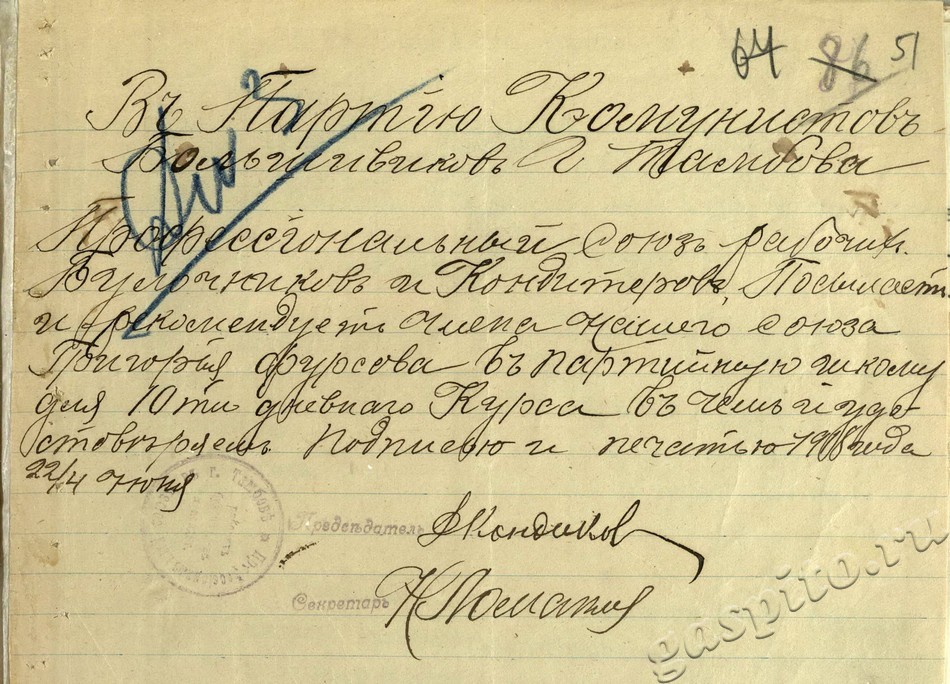 64 86 51
Въ Партію Комунистовъ
Большивиковъ г Тамбова
Професіональный союзъ рабочих
Булочниковъ и Кондитеровъ, Посылаетъ
и рекомендуетъ члена нашего союза
Григорія Фурсова въ партийную школу
для 10ти дневнаго Курса въ чемъ и удо
стовѣряемъ подписью и печатью 1918 года
22/4 июня
Предсѣдатель
Секретарь
gaspito.ru